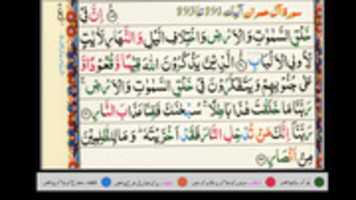 سورۃ آل عمران آیات 191 تا 193
اِنَّ فِیْ
خَلْقِ السَّمٰوٰتِ وَ الْاَرْضِ وَ اخْتِلَافِ الَّیْلِ وَ النَّهَارِ لَاٰیٰتٍ
لِّاُولِی الْاَلْبَابِ الَّذِیْنَ یَذْكُرُوْنَ اللّٰهَ قِیٰمًا وَّ قُعُوْدًا وَّ
عَلٰی جُنُوْبِهِمْ وَ یَتَفَكَّرُوْنَ فِیْ خَلْقِ السَّمٰوٰتِ وَ الْاَرْضِ
رَبَّنَا مَا خَلَقْتَ هٰذَا بَاطِلًا سُبْحٰنَكَ فَقِنَا عَذَابَ النَّارِ
رَبَّنَاۤ اِنَّكَ مَنْ تُدْخِلِ النَّارَ فَقَدْ اَخْزَیْتَهٗ وَ مَا لِلظّٰلِمِیْنَ
مِنْ اَنْصَارٍ